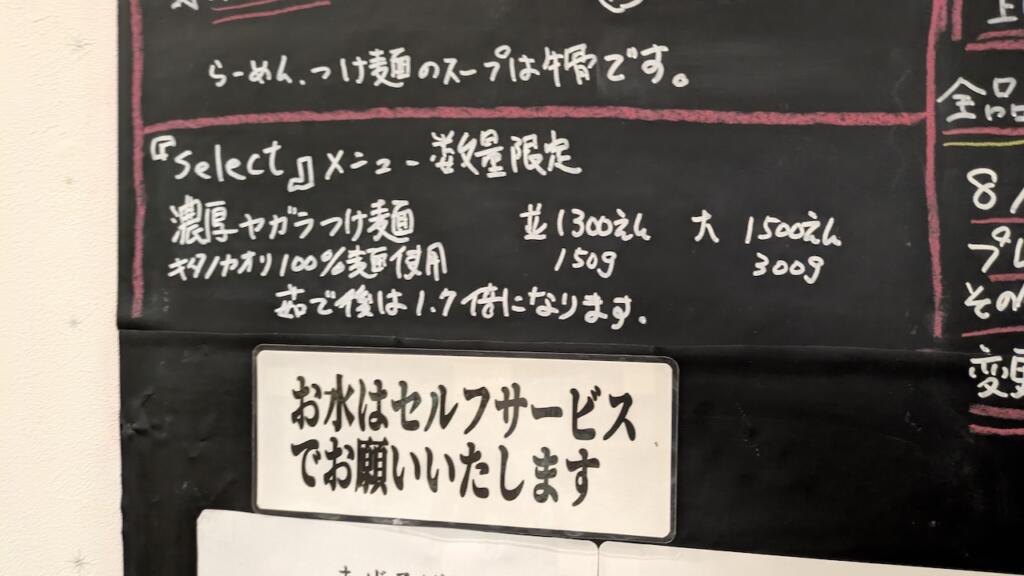 らーめん、つけ麺のスープは牛骨です。
『Select』メニュー数量限定
濃厚ヤガラつけ麺 並1300えん 大 1500えん
キタノカオリ100%麺使用 150g 300g
茹で後は1.7倍になります。
お水はセルフサービス
でお願いいたします
全品
8/
プレ
その
変更